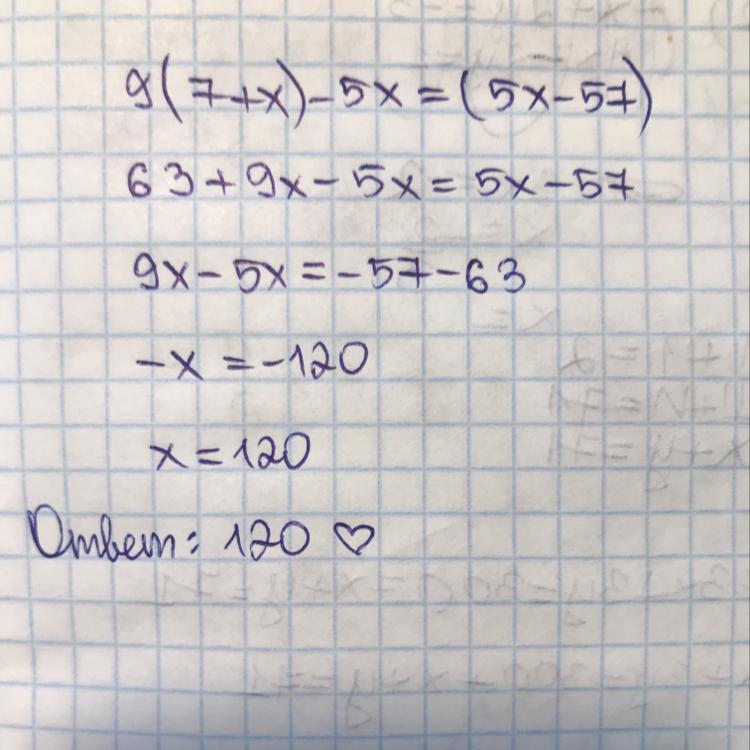 9(7+x)-5x=(5x-57)
63+9x-5x=5x-57
9x-5x=-57-63
-x=-120
x=120
Ответ: 120 ♡